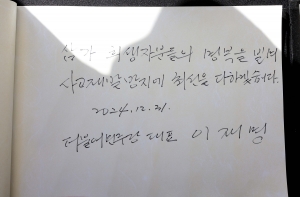 삼가 희생자분들의 명복을 빌며
사고재발 방지에 최선을 다하겠습니다.
2024. 12. 31.
더불어민주당 대표 이재명